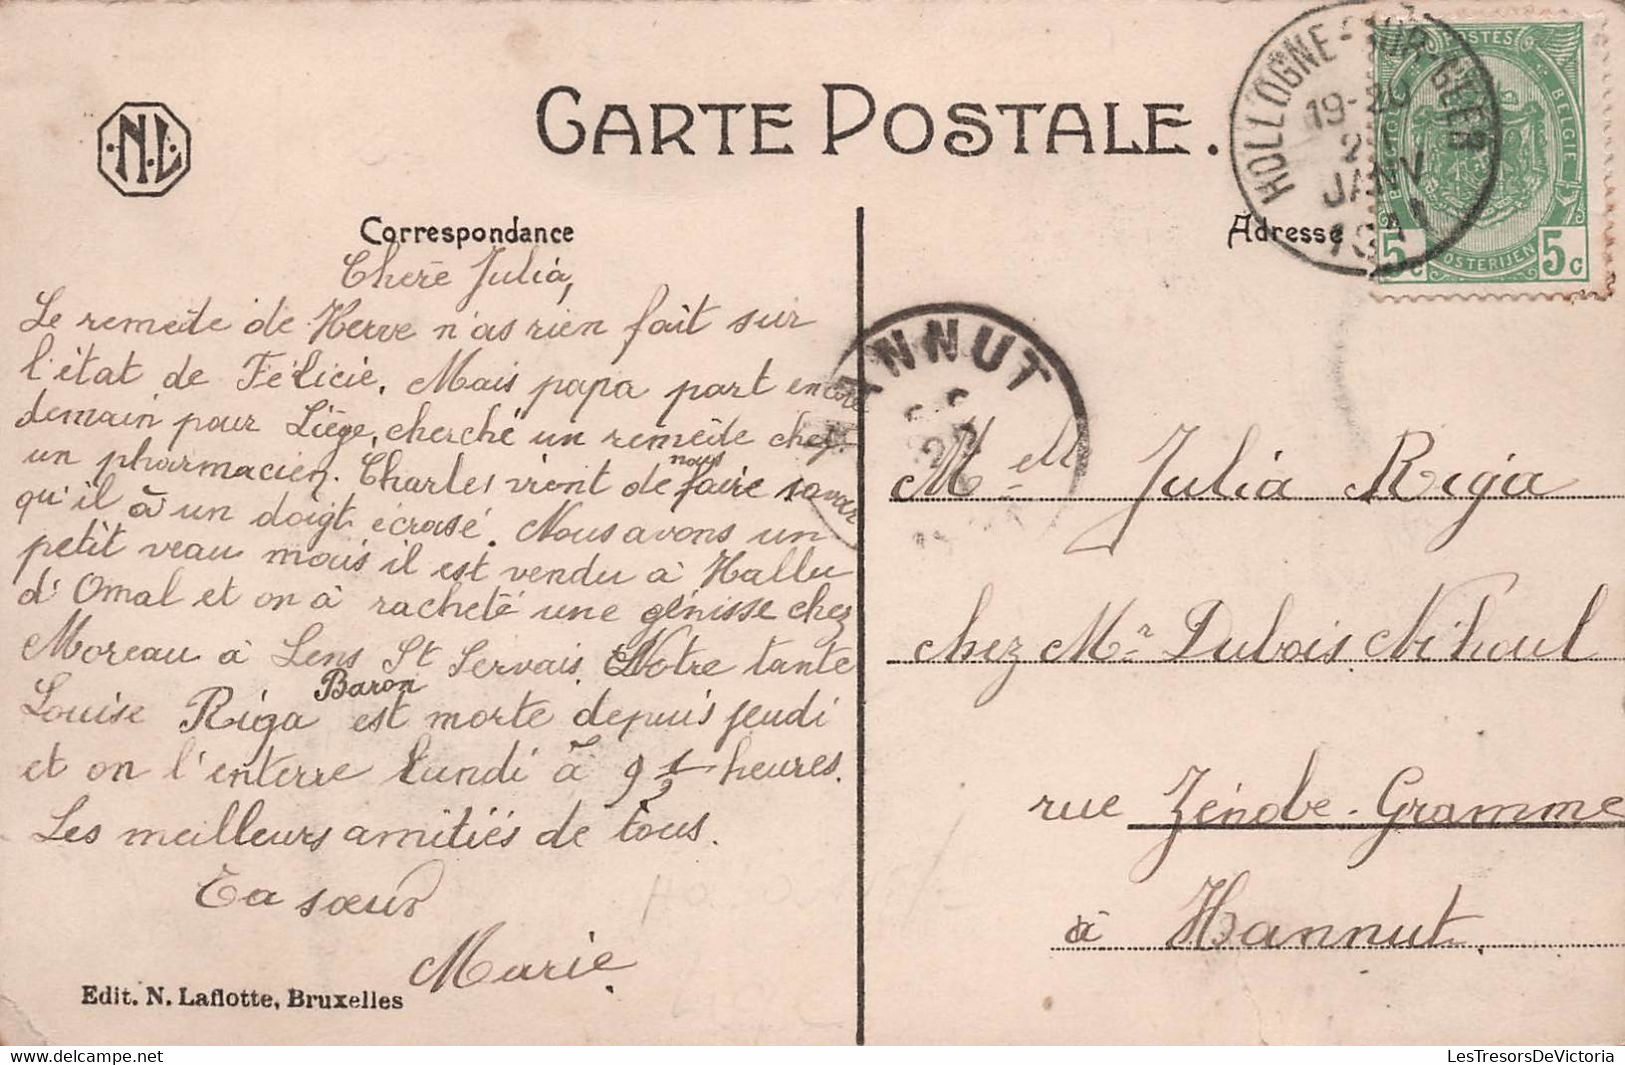 N.L.
CARTE POSTALE.
HOLLOGNE-SUR-GEER
19-20
JANV
POSTES
BELGIQUE BELGIË
POSTERIJEN
5c 5c
Correspondance
Adresse
Cheré Julia,
Le reméde de Herve n'as rien fait sur
l'état de Félicie. Mais papa part encore
demain pour Liége, cherché un reméde chez
un pharmacien. Charles vient de nous faire savoir
qu'il à un doigt écrasé. Nous avons un
petit veau mais il est vendu à Hallu
d'Omal et on à racheté une génisse chez
Moreau à Lens St Servais. Notre tante
Louise Riga Baron est morte depuis jeudi
et on l'enterre Lundi à 9 1/2 heures.
Les meilleurs amitiés de tous.
Ta sœur
Marie.
HANNUT
Melle Julia Riga
chez Mr Dubois Nihoul
rue Zénobe-Gramme
à Hannut.
Edit. N. Laflotte, Bruxelles
LesTresorsDeVictoria